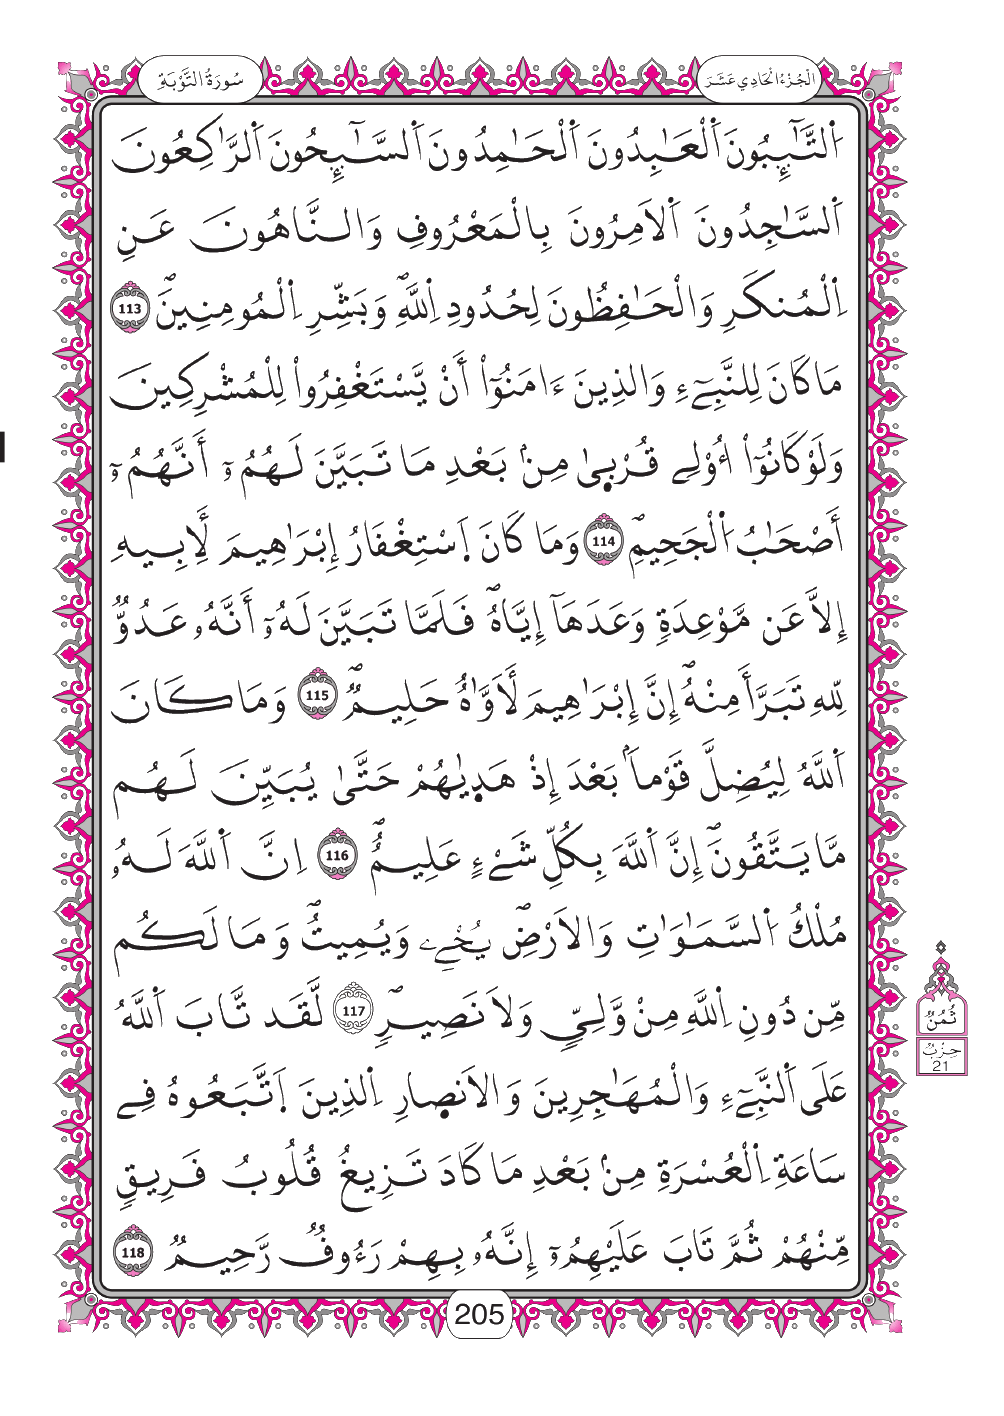 الجُزْءُ الحَادِي عَشَرَ
سُورَةُ التَّوْبَةِ
اَ۬لتَّٰٓئِبُونَ اَ۬لْعَٰبِدُونَ اَ۬لْحَٰمِدُونَ اَ۬لسَّٰٓئِحُونَ اَ۬لرَّٰكِعُونَ
اَ۬لسَّٰجِدُونَ اَ۬لَامِرُونَ بِالْمَعْرُوفِ وَالنَّاهُونَ عَنِ
اِ۬لْمُنكَرِ وَالْحَٰفِظُونَ لِحُدُودِ اِ۬للَّهِۖ وَبَشِّرِ اِ۬لْمُومِنِينَۖ 113
مَا كَانَ لِلنَّبِےٓءِ وَالذِينَ ءَامَنُوٓاْ أَنْ يَّسْتَغْفِرُواْ لِلْمُشْرِكِينَ
وَلَوْ كَانُوٓاْ أُوْلِے قُرْب۪يٰ مِنۢ بَعْدِ مَا تَبَيَّنَ لَهُمُۥٓ أَنَّهُمُۥٓ
أَصْحَٰبُ اُ۬لْجَحِيمِۖ 114 وَمَا كَانَ اَ۪سْتِغْفَارُ إِبْرَٰهِيمَ لِأَبِيهِ
إِلَّا عَن مَّوْعِدَةٖ وَعَدَهَآ إِيَّاهُۖ فَلَمَّا تَبَيَّنَ لَهُۥٓ أَنَّهُۥ عَدُوّٞ
لِّلهِ تَبَرَّأَ مِنْهُۖ إِنَّ إِبْرَٰهِيمَ لَأَوَّٰهٌ حَلِيمٞۖ 115 وَمَا كَانَ
اَ۬للَّهُ لِيُضِلَّ قَوْماَۢ بَعْدَ إِذْ هَد۪يٰهُمْ حَتَّىٰ يُبَيِّنَ لَهُم
مَّا يَتَّقُونَۖ إِنَّ اَ۬للَّهَ بِكُلِّ شَےْءٍ عَلِيمٌۖ 116 اِنَّ اَ۬للَّهَ لَهُۥ
مُلْكُ اُ۬لسَّمَٰوَٰتِ وَالَارْضِۖ يُحْيِے وَيُمِيتُۖ وَمَا لَكُم
مِّن دُونِ اِ۬للَّهِ مِنْ وَّلِيّٖ وَلَا نَصِيرٖۖ 117 لَّقَد تَّابَ اَ۬للَّهُ
عَلَى اَ۬لنَّبِےٓءِ وَالْمُهَٰجِرِينَ وَالَانص۪ارِ اِ۬لذِينَ اَ۪تَّبَعُوهُ فِے
سَاعَةِ اِ۬لْعُسْرَةِ مِنۢ بَعْدِ مَا كَادَ تَزِيغُ قُلُوبُ فَرِيقٖ
مِّنْهُمْ ثُمَّ تَابَ عَلَيْهِمُۥٓ إِنَّهُۥ بِهِمْ رَءُوفٞ رَّحِيمٞ 118
ثُمُنٌ
حِزْبُ
21
205